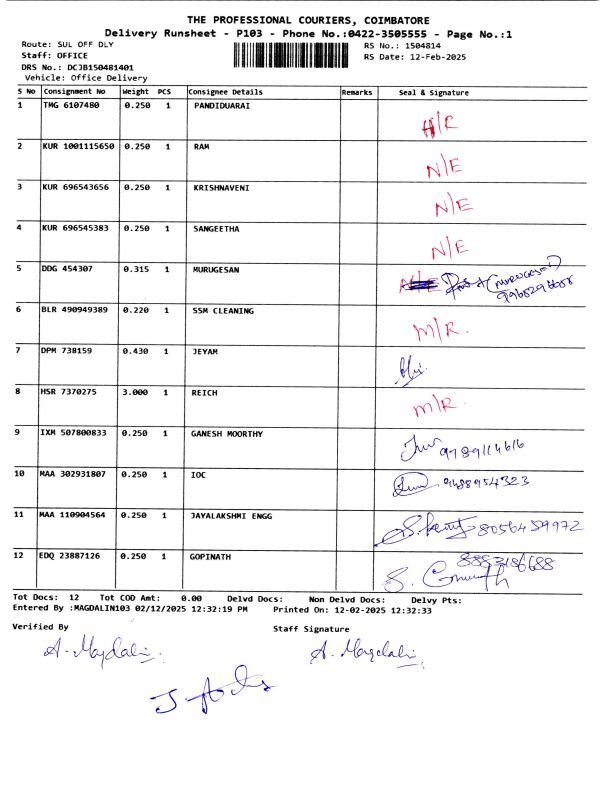 THE PROFESSIONAL COURIERS, COIMBATORE
Delivery Runsheet - P103 - Phone No.:0422-3505555 - Page No.:1
Route: SUL OFF DLY RS No.: 1504814
Staff: OFFICE RS Date: 12-Feb-2025
DRS No.: DCJB150481401
Vehicle: Office Delivery
S No Consignment No Weight PCS Consignee Details Remarks Seal & Signature
1 TMG 6107480 0.250 1 PANDIDUARAI
H/R
2 KUR 1001115650 0.250 1 RAM
N/E
3 KUR 696543656 0.250 1 KRISHNAVENI
N/E
4 KUR 696545383 0.250 1 SANGEETHA
N/E
5 DDG 454307 0.315 1 MURUGESAN
(MURUGESAN)
6 BLR 490949389 0.220 1 SSM CLEANING
M/R.
7 DPM 738159 0.430 1 JEYAM
8 HSR 7370275 3.000 1 REICH
M/R.
9 IXM 507800833 0.250 1 GANESH MOORTHY
9789114616
10 MAA 302931807 0.250 1 IOC
9488954323
11 MAA 110904564 0.250 1 JAYALAKSHMI ENGG
8056459972
12 EDQ 23887126 0.250 1 GOPINATH
Tot Docs: 12 Tot COD Amt: 0.00 Delvd Docs: Non Delvd Docs: Delvy Pts:
Entered By :MAGDALIN103 02/12/2025 12:32:19 PM Printed On: 12-02-2025 12:32:33
Verified By Staff Signature
A. Magdalin. A. Magdalin.